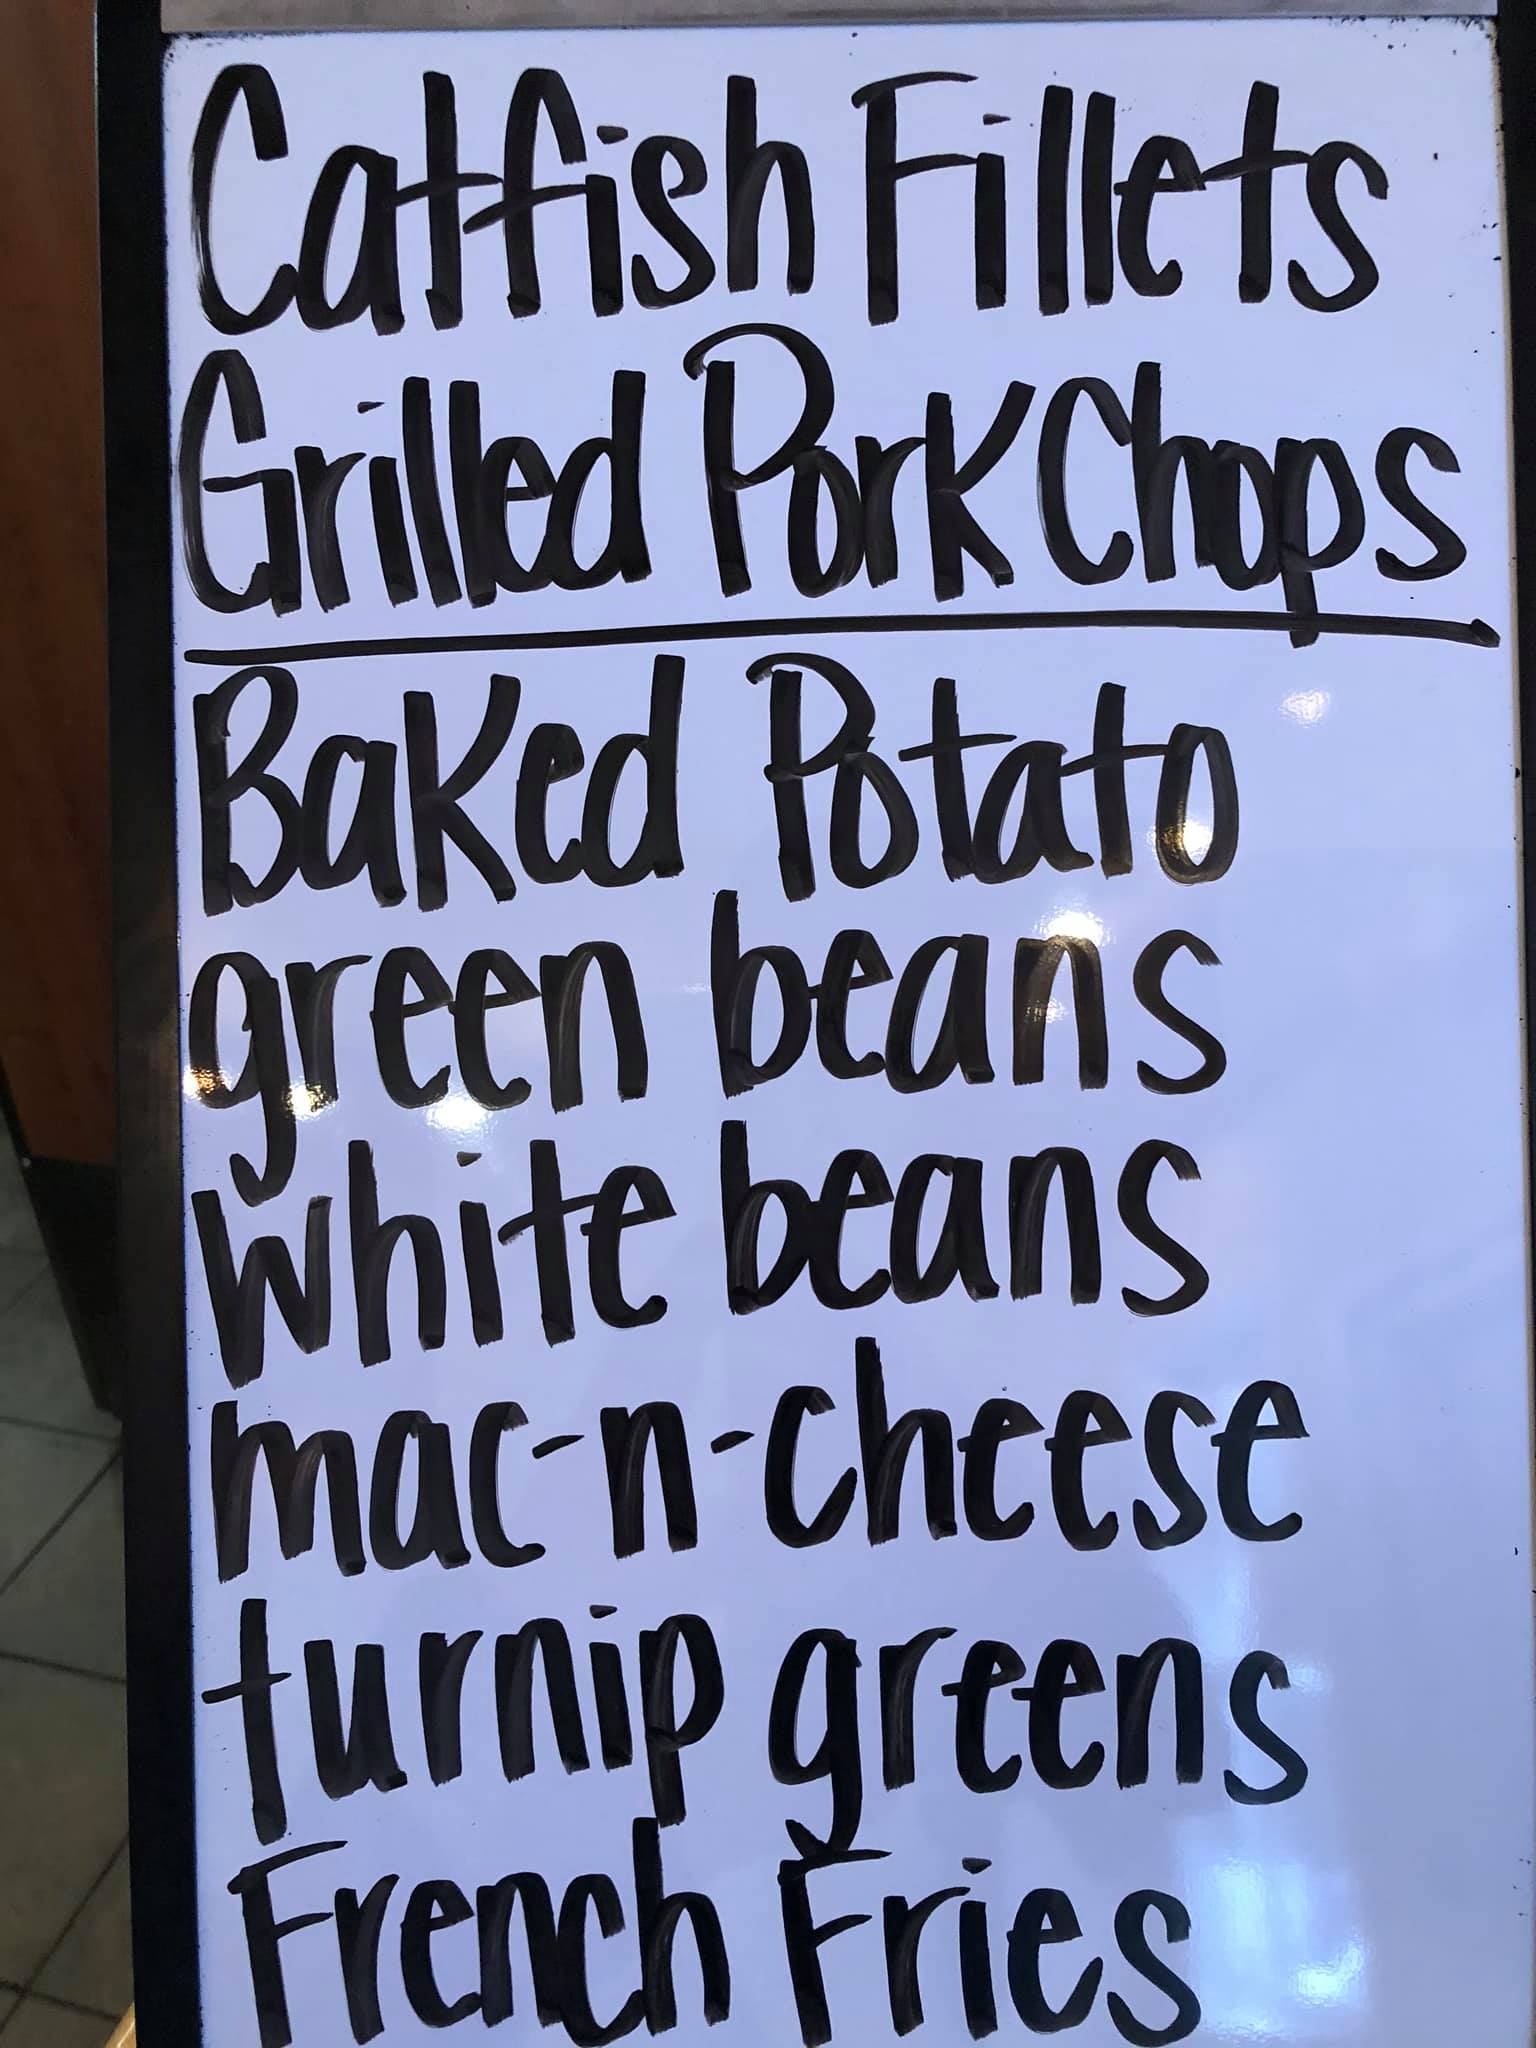 Catfish Fillets
Grilled Pork Chops
Baked Potato
green beans
white beans
mac-n-cheese
turnip greens
French Fries